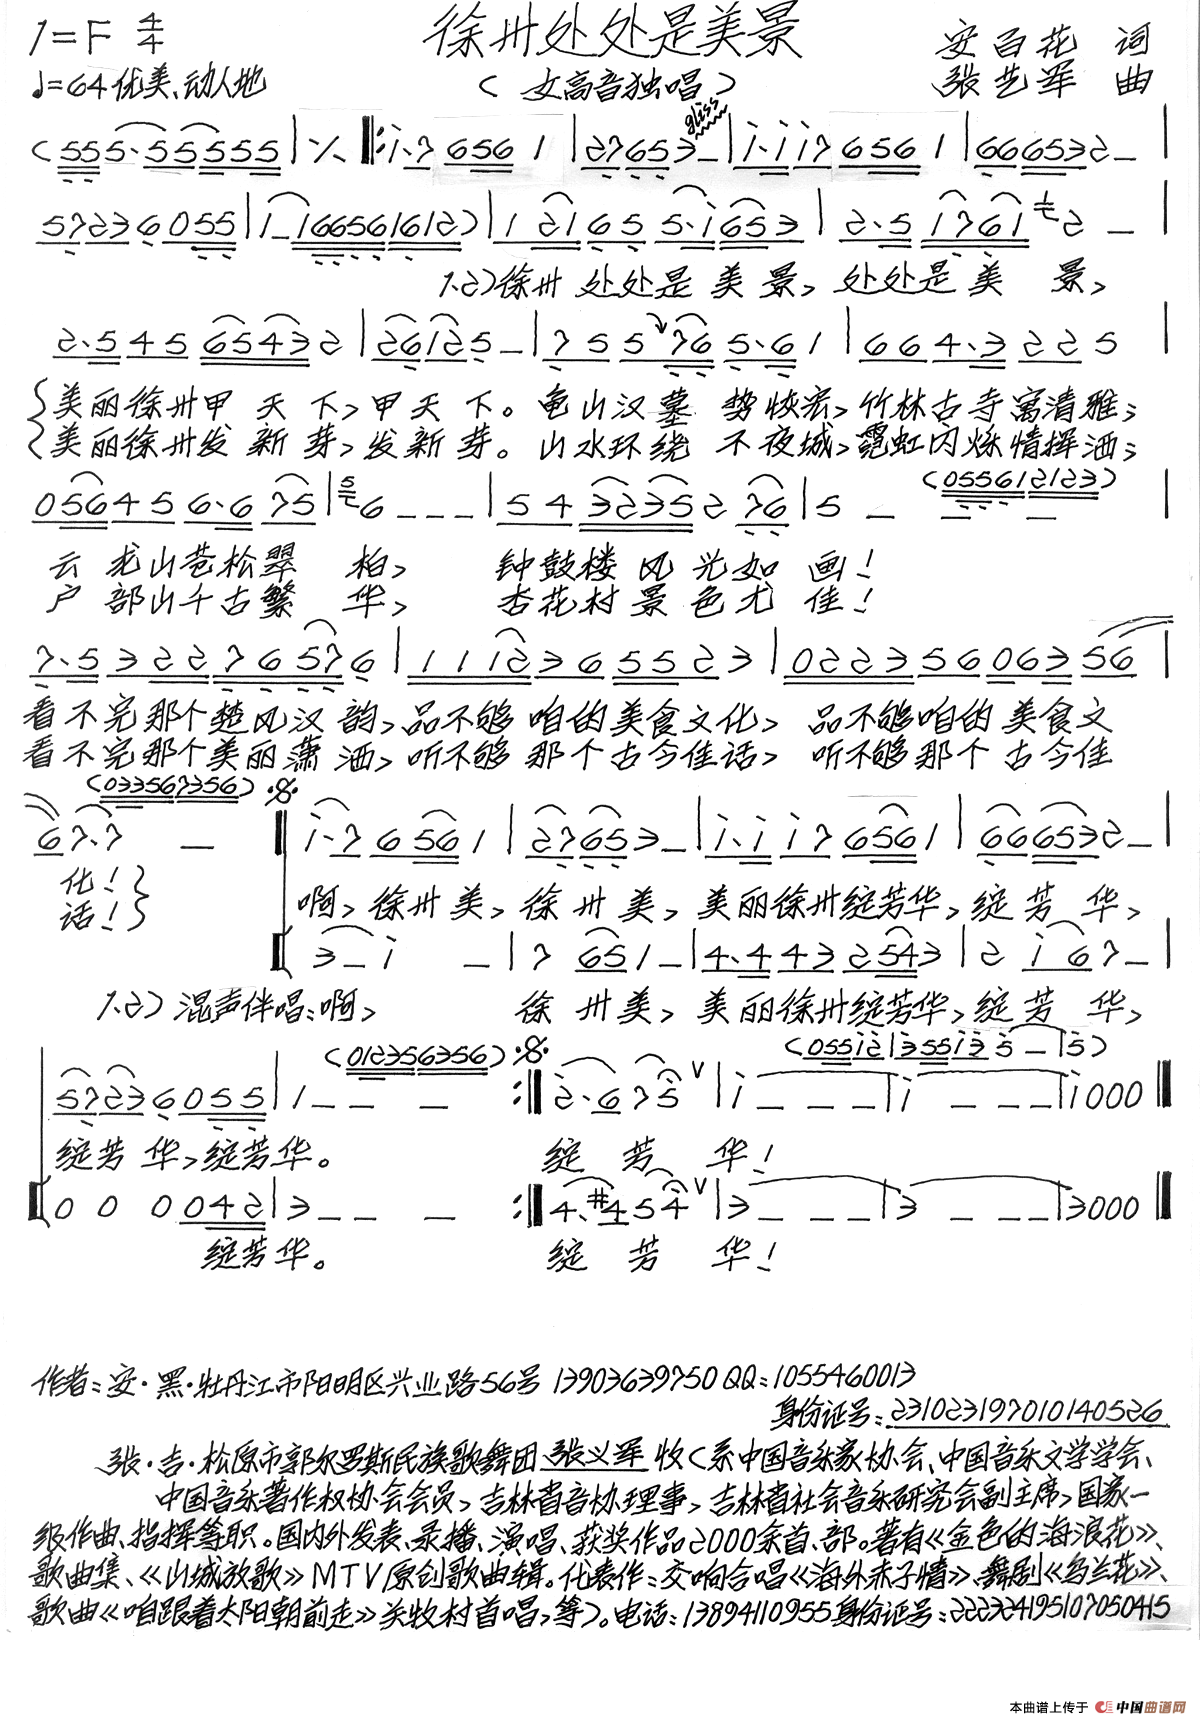 1=F 4/4
徐州处处是美景
安百花 词
♩=64 优美、动人地
(女高音独唱)
张艺军 曲
(555·55555|٪‖:i·7 6561|27653–|i·ii76561|666532–|
gliss
57236055|i–166561612)|12165 5·1653|2·51761 2–|
1.2)徐州处处是美景,处处是美 景,
2·54565432|26125–|75576 5·61|664·3225|
美丽徐州甲天下,甲天下。龟山汉墓 势恢宏,竹林古寺寓清雅;
美丽徐州发新芽,发新芽。山水环绕 不夜城,霓虹闪烁情挥洒;
(055612123)
056456·675|6–––|543235276|5–––|
云龙山苍松翠 柏, 钟鼓楼风光如 画!
户部山千古繁 华, 杏花村景色尤 佳!
7·532276576|1112365523|0223560635 6|
看不完那个楚风汉韵,品不够咱的美食文化, 品不够咱的美食文
看不完那个美丽潇洒,听不够那个古今佳话, 听不够那个古今佳
(033567356)
67·7 –‖i·76561|27653–|i·ii76561|666532–|
化!
话!
啊,徐州美,徐州美,美丽徐州绽芳华,绽芳华,
3–i –|7651–|4·4432543|2i67–|
1.2)混声伴唱:啊, 徐州美,美丽徐州绽芳华,绽芳华,
(012356356)
(055i2|355i35–|5)
57236055|1–––:‖2·675 V|i–––|i–––|i000‖
绽芳华,绽芳华。 绽芳华!
000042|3–––:‖4·#454 V|3–––|3–––|3000‖
绽芳华。 绽芳华!
作者:安·黑·牡丹江市阳明区兴业路56号 13903639750 QQ:1055460013
身份证号:231023197010140526
张·吉·松原市郭尔罗斯民族歌舞团张义军 收(系中国音乐家协会、中国音乐文学学会、
中国音乐著作权协会会员,吉林省音协理事,吉林省社会音乐研究会副主席,国家一
级作曲、指挥等职。国内外发表、录播、演唱、获奖作品2000余首、部。著有《金色的海浪花》、
歌曲集、《山城放歌》MTV原创歌曲辑。代表作:交响合唱《海外赤子情》、舞剧《乌兰花》、
歌曲《咱跟着太阳朝前走》关牧村首唱,等)。电话:13894110955 身份证号:222324195107050415
本曲谱上传于 中国曲谱网